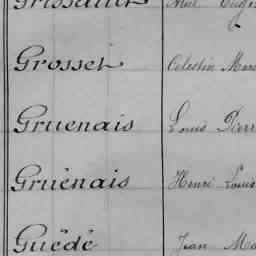 Grosset Célestin Marc
Gruenais Louis Pierr
Gruènais Henri Louis
Guédé Jean Ma